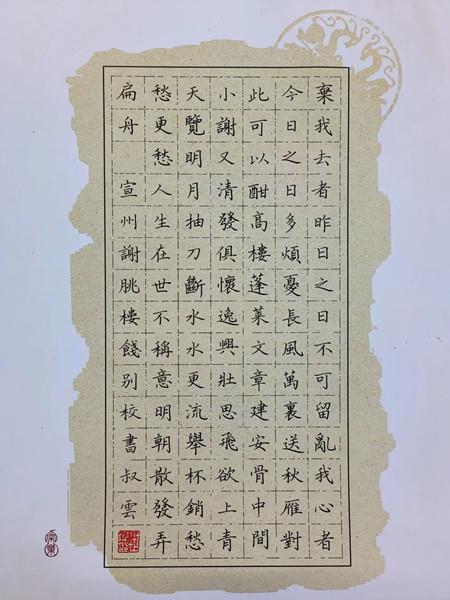 棄我去者昨日之日不可留亂我心者
今日之日多煩憂長風萬裏送秋雁對
此可以酣高樓蓬萊文章建安骨中間
小謝又清發俱懷逸興壯思飛欲上青
天覽明月抽刀斷水水更流舉杯銷愁
愁更愁人生在世不稱意明朝散發弄
扁舟　宣州謝朓樓餞別校書叔雲